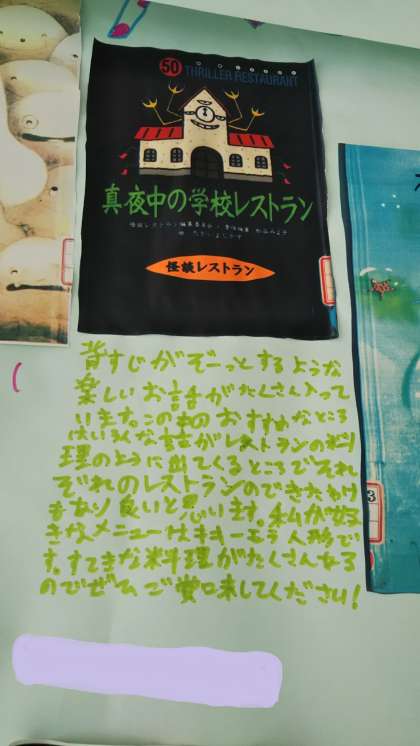 50
THRILLER RESTAURANT
真夜中の学校レストラン
怪談レストラン編集委員会・責任編集 松谷みよ子
怪談レストラン
背すじがぞーっとするような
楽しいお話がたくさん入って
います。この本のおすすめなところ
はいろんな話がレストランの料
理のように出てくるところでそれ
ぞれのレストランのできたわけ
もあり良いと思います。私が好
きなメニューはキキーモラ人形で
す。すてきな料理がたくさんある
のでぜひご賞味してください!